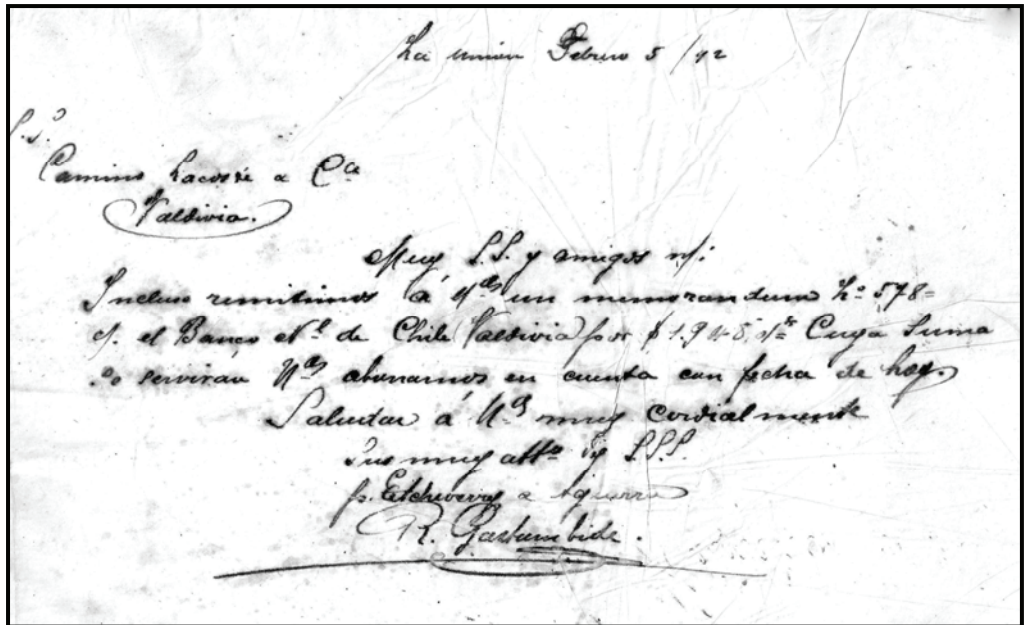 La Union Febrero 5 / 92
S.S.
Camino Lacoste & Cª
Valdivia.
Muy S.S. y amigos n/:
Incluso remitimos á Uds un memorandum No 578=
c/. el Banco Nl de Chile (Valdivia) por $ 1.945, Cuya Suma
se serviran Uds abonarnos en cuenta con fecha de hoy.
Saludan á Uds muy cordialmente
Sus muy attos S.S.S.
p. Etcheverry & Aguerre
R. Gastambide.